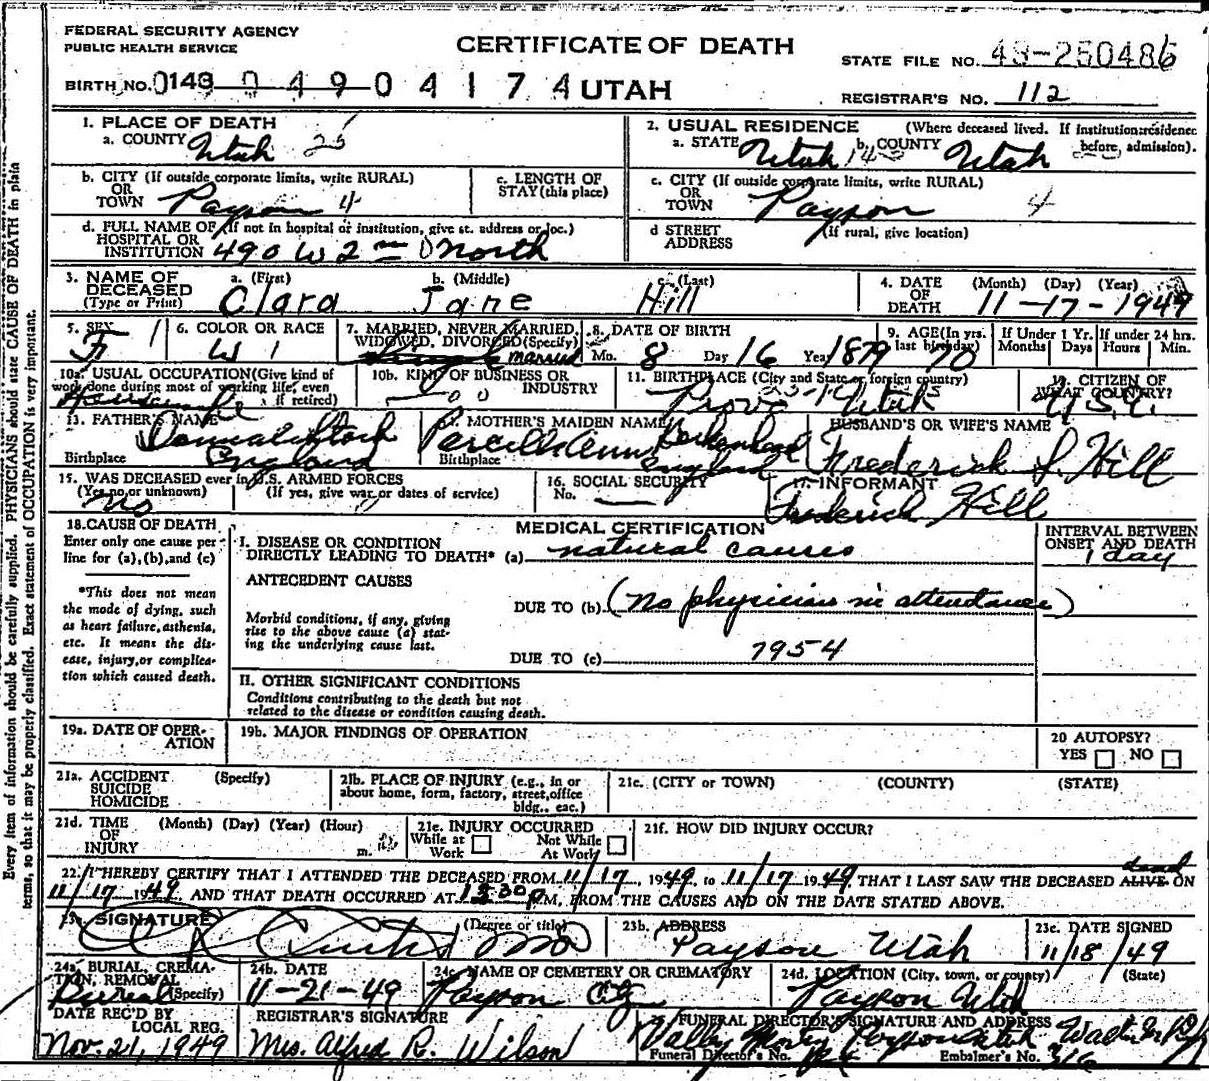 FEDERAL SECURITY AGENCY
PUBLIC HEALTH SERVICE
CERTIFICATE OF DEATH
STATE FILE NO. 49-250486
BIRTH NO. 0149 0 4 9 0 4 1 7 4 UTAH
REGISTRAR'S NO. 112
1. PLACE OF DEATH
a. COUNTY Utah 25
2. USUAL RESIDENCE (Where deceased lived. If institution:residence before admission).
a. STATE Utah b. COUNTY Utah
b. CITY (If outside corporate limits, write RURAL)
OR
TOWN Payson 4
c. LENGTH OF
STAY (this place)
c. CITY (If outside corporate limits, write RURAL)
OR
TOWN Payson 4
d. FULL NAME OF (If not in hospital or institution, give st. address or loc.)
HOSPITAL OR
INSTITUTION 490 W 2nd North
d STREET (If rural, give location)
ADDRESS
3. NAME OF
DECEASED
(Type or Print)
a. (First) Clara
b. (Middle) Jane
c. (Last) Hill
4. DATE
OF
DEATH
(Month) (Day) (Year)
11-17-1949
5. SEX F
6. COLOR OR RACE W
7. MARRIED, NEVER MARRIED,
WIDOWED, DIVORCED(Specify)
married
8. DATE OF BIRTH
Mo. 8 Day 16 Year 1879
9. AGE(In yrs.
last birthday) 70
If Under 1 Yr. If under 24 hrs.
Months Days Hours Min.
10a. USUAL OCCUPATION(Give kind of
work done during most of working life, even
if retired) Housewife
10b. KIND OF BUSINESS OR
INDUSTRY
11. BIRTHPLACE (City and State or foreign country)
Provo Utah
12. CITIZEN OF
WHAT COUNTRY?
U.S.A.
13. FATHER'S NAME
Birthplace England
14. MOTHER'S MAIDEN NAME
Birthplace England
HUSBAND'S OR WIFE'S NAME
Frederick S. Hill
15. WAS DECEASED ever in U.S. ARMED FORCES
(Yes, no, or unknown) (If yes, give war or dates of service)
no
16. SOCIAL SECURITY
No.
17. INFORMANT
Frederick Hill
18. CAUSE OF DEATH
Enter only one cause per
line for (a),(b),and (c)
*This does not mean
the mode of dying, such
as heart failure, asthenia,
etc. It means the dis-
ease, injury, or complica-
tion which caused death.
MEDICAL CERTIFICATION
I. DISEASE OR CONDITION
DIRECTLY LEADING TO DEATH* (a) natural causes
INTERVAL BETWEEN
ONSET AND DEATH
1 day
ANTECEDENT CAUSES
DUE TO (b) (no physician in attendance)
Morbid conditions, if any, giving
rise to the above cause (a) stat-
ing the underlying cause last.
DUE TO (c) 7954
II. OTHER SIGNIFICANT CONDITIONS
Conditions contributing to the death but not
related to the disease or condition causing death.
19a. DATE OF OPER-
ATION
19b. MAJOR FINDINGS OF OPERATION
20 AUTOPSY?
YES NO
21a. ACCIDENT (Specify)
SUICIDE
HOMICIDE
21b. PLACE OF INJURY (e.g., in or
about home, form, factory, street, office
bldg., eac.)
21c. (CITY or TOWN) (COUNTY) (STATE)
21d. TIME (Month) (Day) (Year) (Hour)
OF
INJURY m.
21e. INJURY OCCURRED
While at Work Not While At Work
21f. HOW DID INJURY OCCUR?
22. I HEREBY CERTIFY THAT I ATTENDED THE DECEASED FROM 11/17, 1949, to 11/17 1949 THAT I LAST SAW THE DECEASED ALIVE dead ON
11/17 1949 AND THAT DEATH OCCURRED AT 12:30 P M, FROM THE CAUSES AND ON THE DATE STATED ABOVE.
23a. SIGNATURE (Degree or title)
Curtis MD
23b. ADDRESS
Payson Utah
23c. DATE SIGNED
11/18/49
24a. BURIAL, CREMA-
TION, REMOVAL
(Specify) Burial
24b. DATE
11-21-49
24c. NAME OF CEMETERY OR CREMATORY
Payson City
24d. LOCATION (City, town, or county) (State)
Payson Utah
DATE REC'D BY
LOCAL REG.
Nov. 21, 1949
REGISTRAR'S SIGNATURE
Mrs. Alfred R. Wilson
25. FUNERAL DIRECTOR'S SIGNATURE AND ADDRESS
Valley Payson Utah
Funeral Director's No. Embalmer's No. 316
Every item of information should be carefully supplied. PHYSICIANS should state CAUSE OF DEATH in plain
terms, so that it may be properly classified. Exact statement of OCCUPATION is very important.